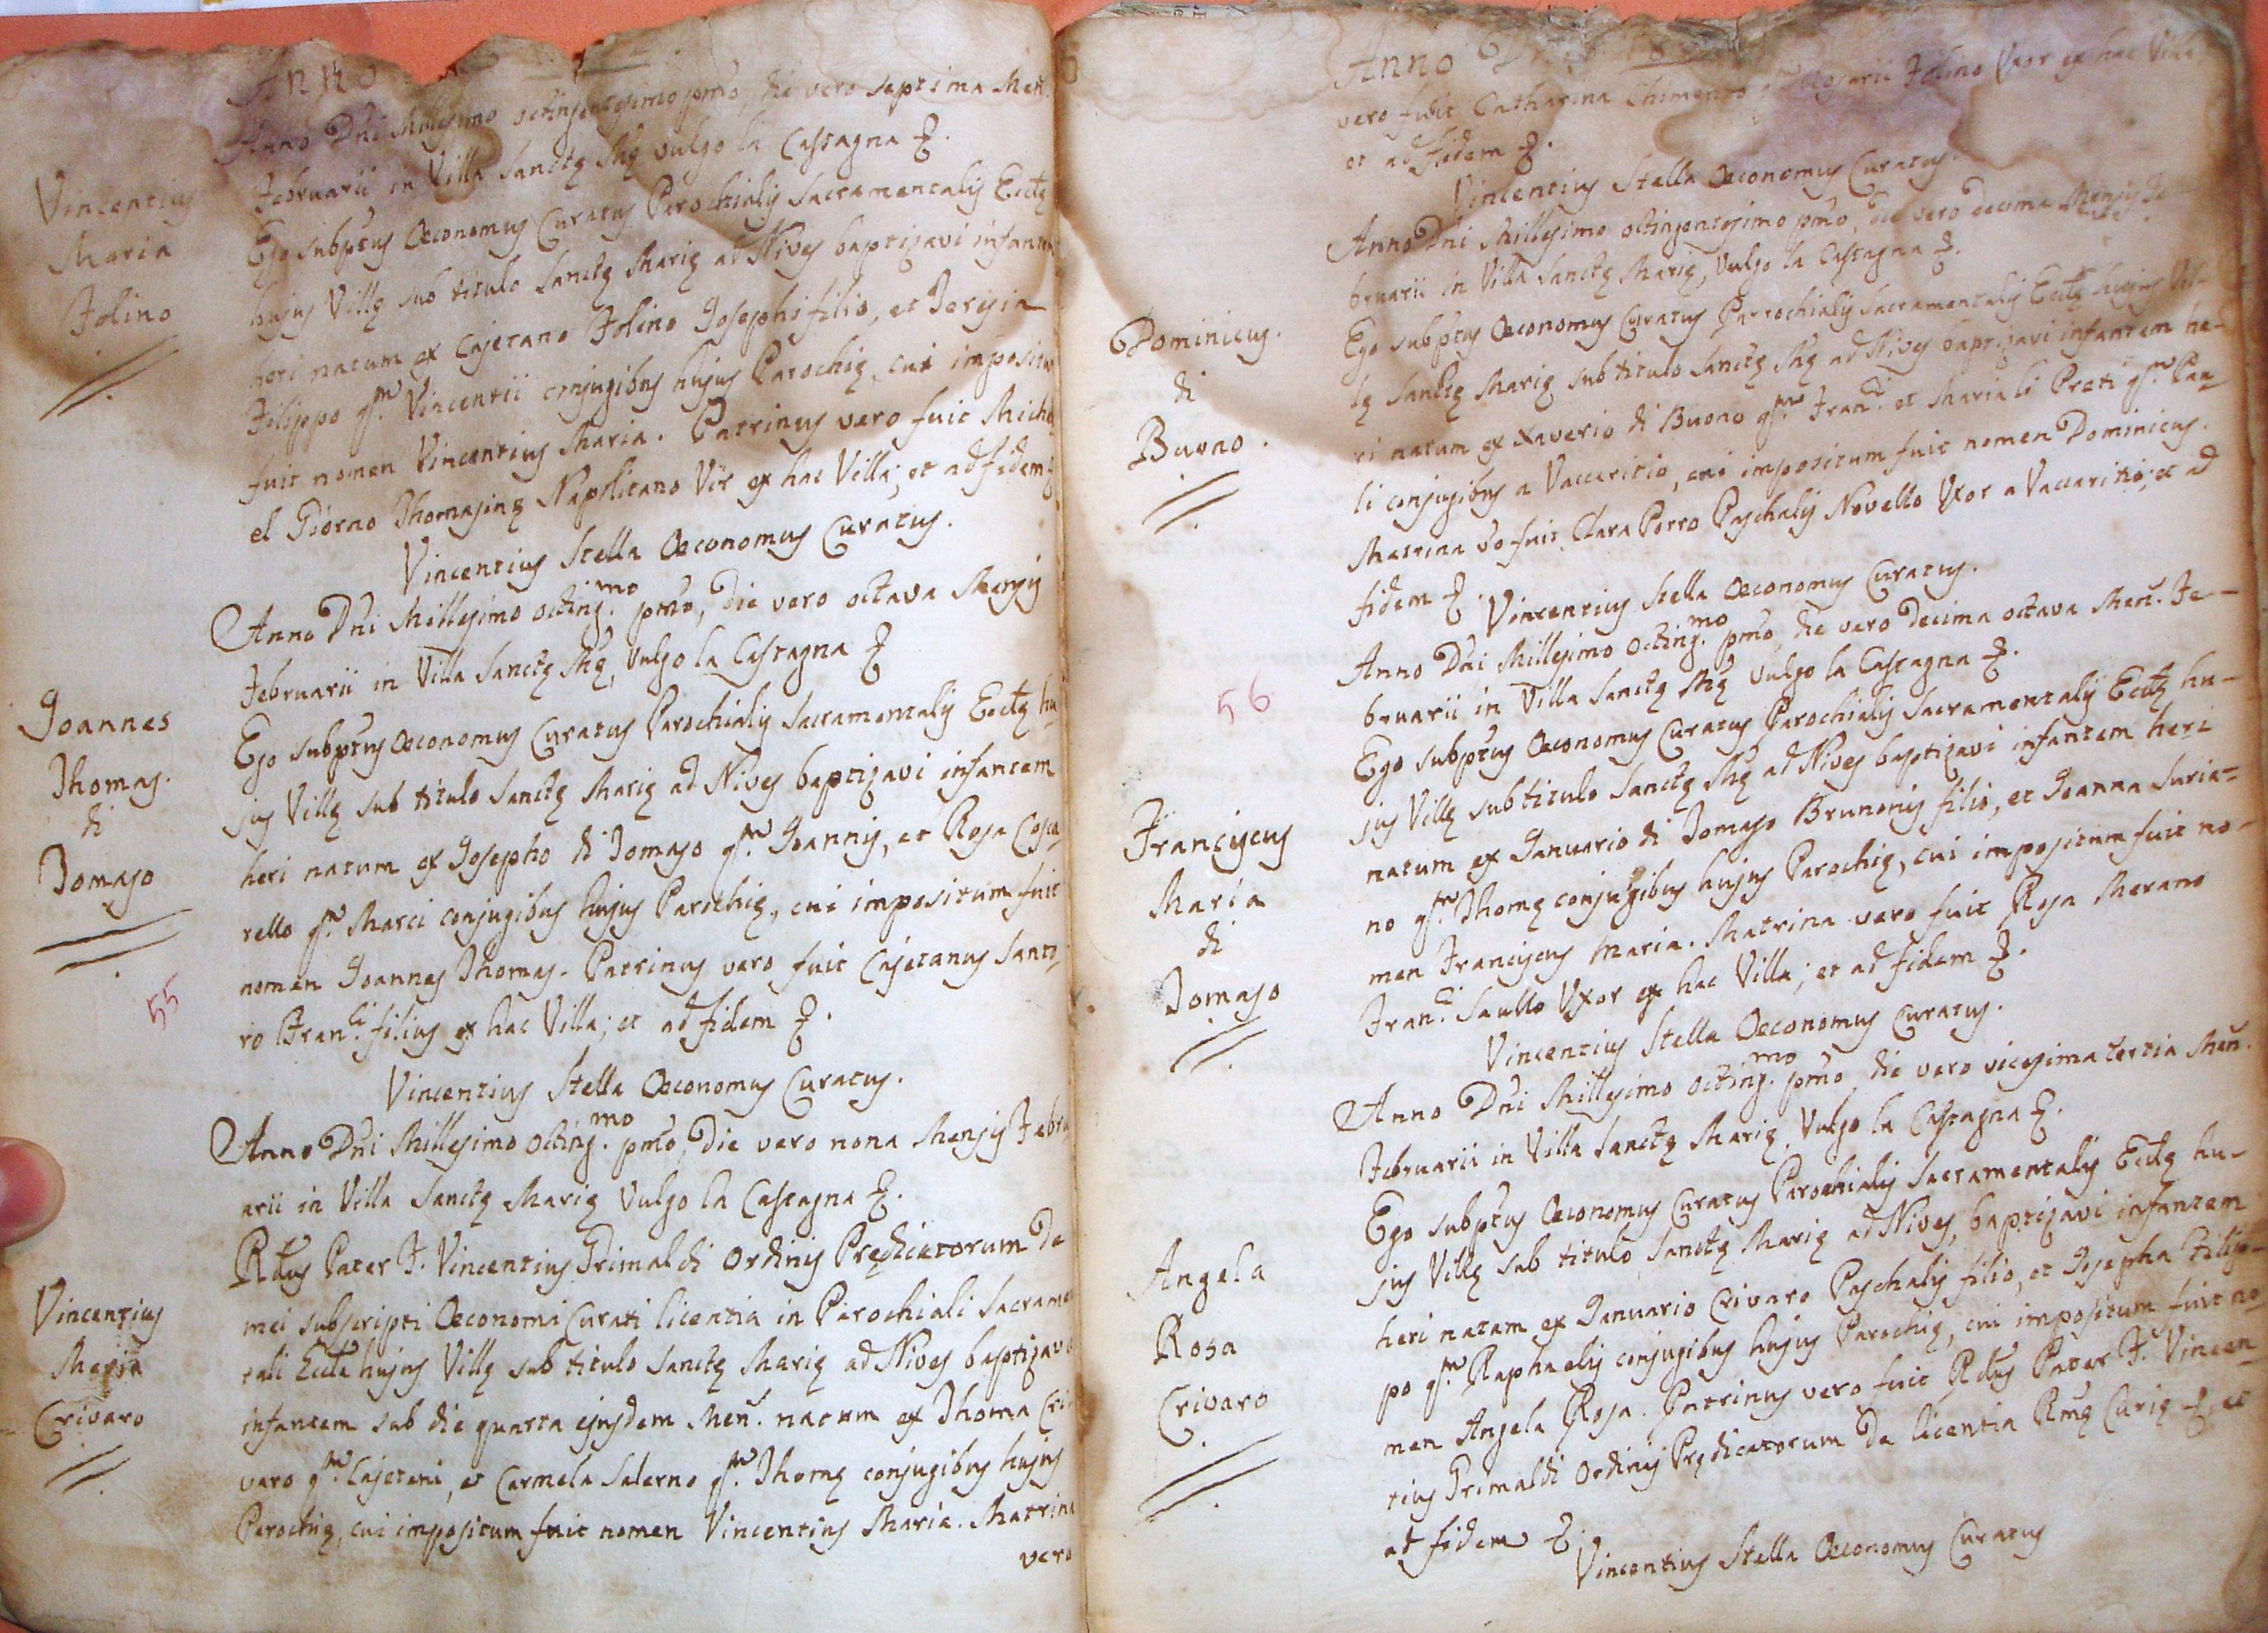 Anno
Anno Dñi Millesimo octingentesimo pmo, die vero septima Meñ.
Februarii in Villa Sanctę Mę vulgo la Castagna
Vincentius
Maria
Folino
Ego subptus Œconomus Curatus Parochialis Sacramentalis Ecclę
hujus Villę sub titulo Sanctę Marię ad Nives baptizavi infantem
heri natum ex Cajetano Folino Josephi filio, et Teresia
Filippo qm. Vincentii conjugibus hujus Parochię, cui impositum
fuit nomen Vincentius Maria. Patrinus vero fuit Micha
el Giorno Thomasinę Napolitano Vir ex hac Villa; et ad fidem
Vincentius Stella Œconomus Curatus.
Anno Dñi Millesimo Octing.mo pmo, die vero octava Mensis
Februarii in Villa Sanctę Mę, vulgo la Castagna
Joannes
Thomas.
di
Tomaso
Ego subptus Œconomus Curatus Parochialis Sacramentalis Ecclę hu
jus Villę sub titulo Sanctę Marię ad Nives baptizavi infantem
heri natum ex Josepho di Tomaso qm. Joannis, et Rosa Cosca
rello qm. Marci conjugibus hujus Parochię, cui impositum fuit
nomen Joannes Thomas. Patrinus vero fuit Cajetanus Santo
ro Fran.ci filius ex hac Villa; et ad fidem
55
Vincentius Stella Œconomus Curatus.
Anno Dñi Millesimo Octing.mo pmo, die vero nona Mensis Febru
arii in Villa Sanctę Marię vulgo la Castagna
Vincentius
Maria
Crivaro
Rdus Pater F. Vincentius Grimaldi Ordinis Prędicatorum De
mei subscripti Œconomi Curati licentia in Parochiali Sacramen
tali Eccla hujus Villę sub titulo Sanctę Marię ad Nives baptizavit
infantem sub die quarta ejusdem Meñ. natum ex Thoma Cri
varo qm. Cajetani, et Carmela Salerno qm. Thomę conjugibus hujus
Parochię, cui impositum fuit nomen Vincentius Maria. Matrina
vero
Anno
vero fuit Catharina Chimento qm. Rosarii Folino Uxor ex hac Villa
et ad fidem
Vincentius Stella Œconomus Curatus.
Anno Dñi Millesimo octingentesimo pmo, die vero decima Mensis Fe
bruarii in Villa Sanctę Marię, vulgo la Castagna
Dominicus.
di
Buono.
Ego subptus Œconomus Curatus Parrochialis Sacramentalis Ecclę hujus Vil-
lę Sanctę Marię sub titulo Sanctę Mę ad Nives baptizavi infantem he-
ri natum ex Xaverio di Buono qm. Fran.ci et Maria li Preti qm. Pau-
li conjugibus a Vaccaritio, cui impositum fuit nomen Dominicus.
Matrina vo fuit Clara Porro Paschalis Novello Uxor a Vaccaritio; et ad
fidem
Vincentius Stella Œconomus Curatus.
Anno Dñi Millesimo Octing.mo pmo, die vero decima octava Meñ. Fe-
bruarii in Villa Sanctę Mę vulgo la Castagna
56
Franciscus
Maria
di
Tomaso
Ego subptus Œconomus Curatus Parochialis Sacramentalis Ecclę hu-
jus Villę sub titulo Sanctę Mę ad Nives baptizavi infantem heri
natum ex Januario di Tomaso Brunonis filio, et Joanna Suria-
no qm. Thomę conjugibus hujus Parochię, cui impositum fuit no-
men Franciscus Maria. Matrina vero fuit Rosa Merano
Fran.ci Saullo Uxor ex hac Villa; et ad fidem
Vincentius Stella Œconomus Curatus.
Anno Dñi Millesimo Octing.mo pmo, die vero vicesima tertia Meñ.
Februarii in Villa Sanctę Marię, vulgo la Castagna
Angela
Rosa
Crivaro
Ego subptus Œconomus Curatus Parochialis Sacramentalis Ecclę hu-
jus Villę sub titulo Sanctę Marię ad Nives, baptizavi infantem
heri natam ex Januario Crivaro Paschalis filio, et Josepha Filip-
po qm. Raphaelis conjugibus hujus Parochię, cui impositum fuit no
men Angela Rosa. Patrinus vero fuit Rdus Pater F. Vincen-
tius Grimaldi Ordinis Prędicatorum De licentia Rmę Curię et
ad fidem
Vincentius Stella Œconomus Curatus